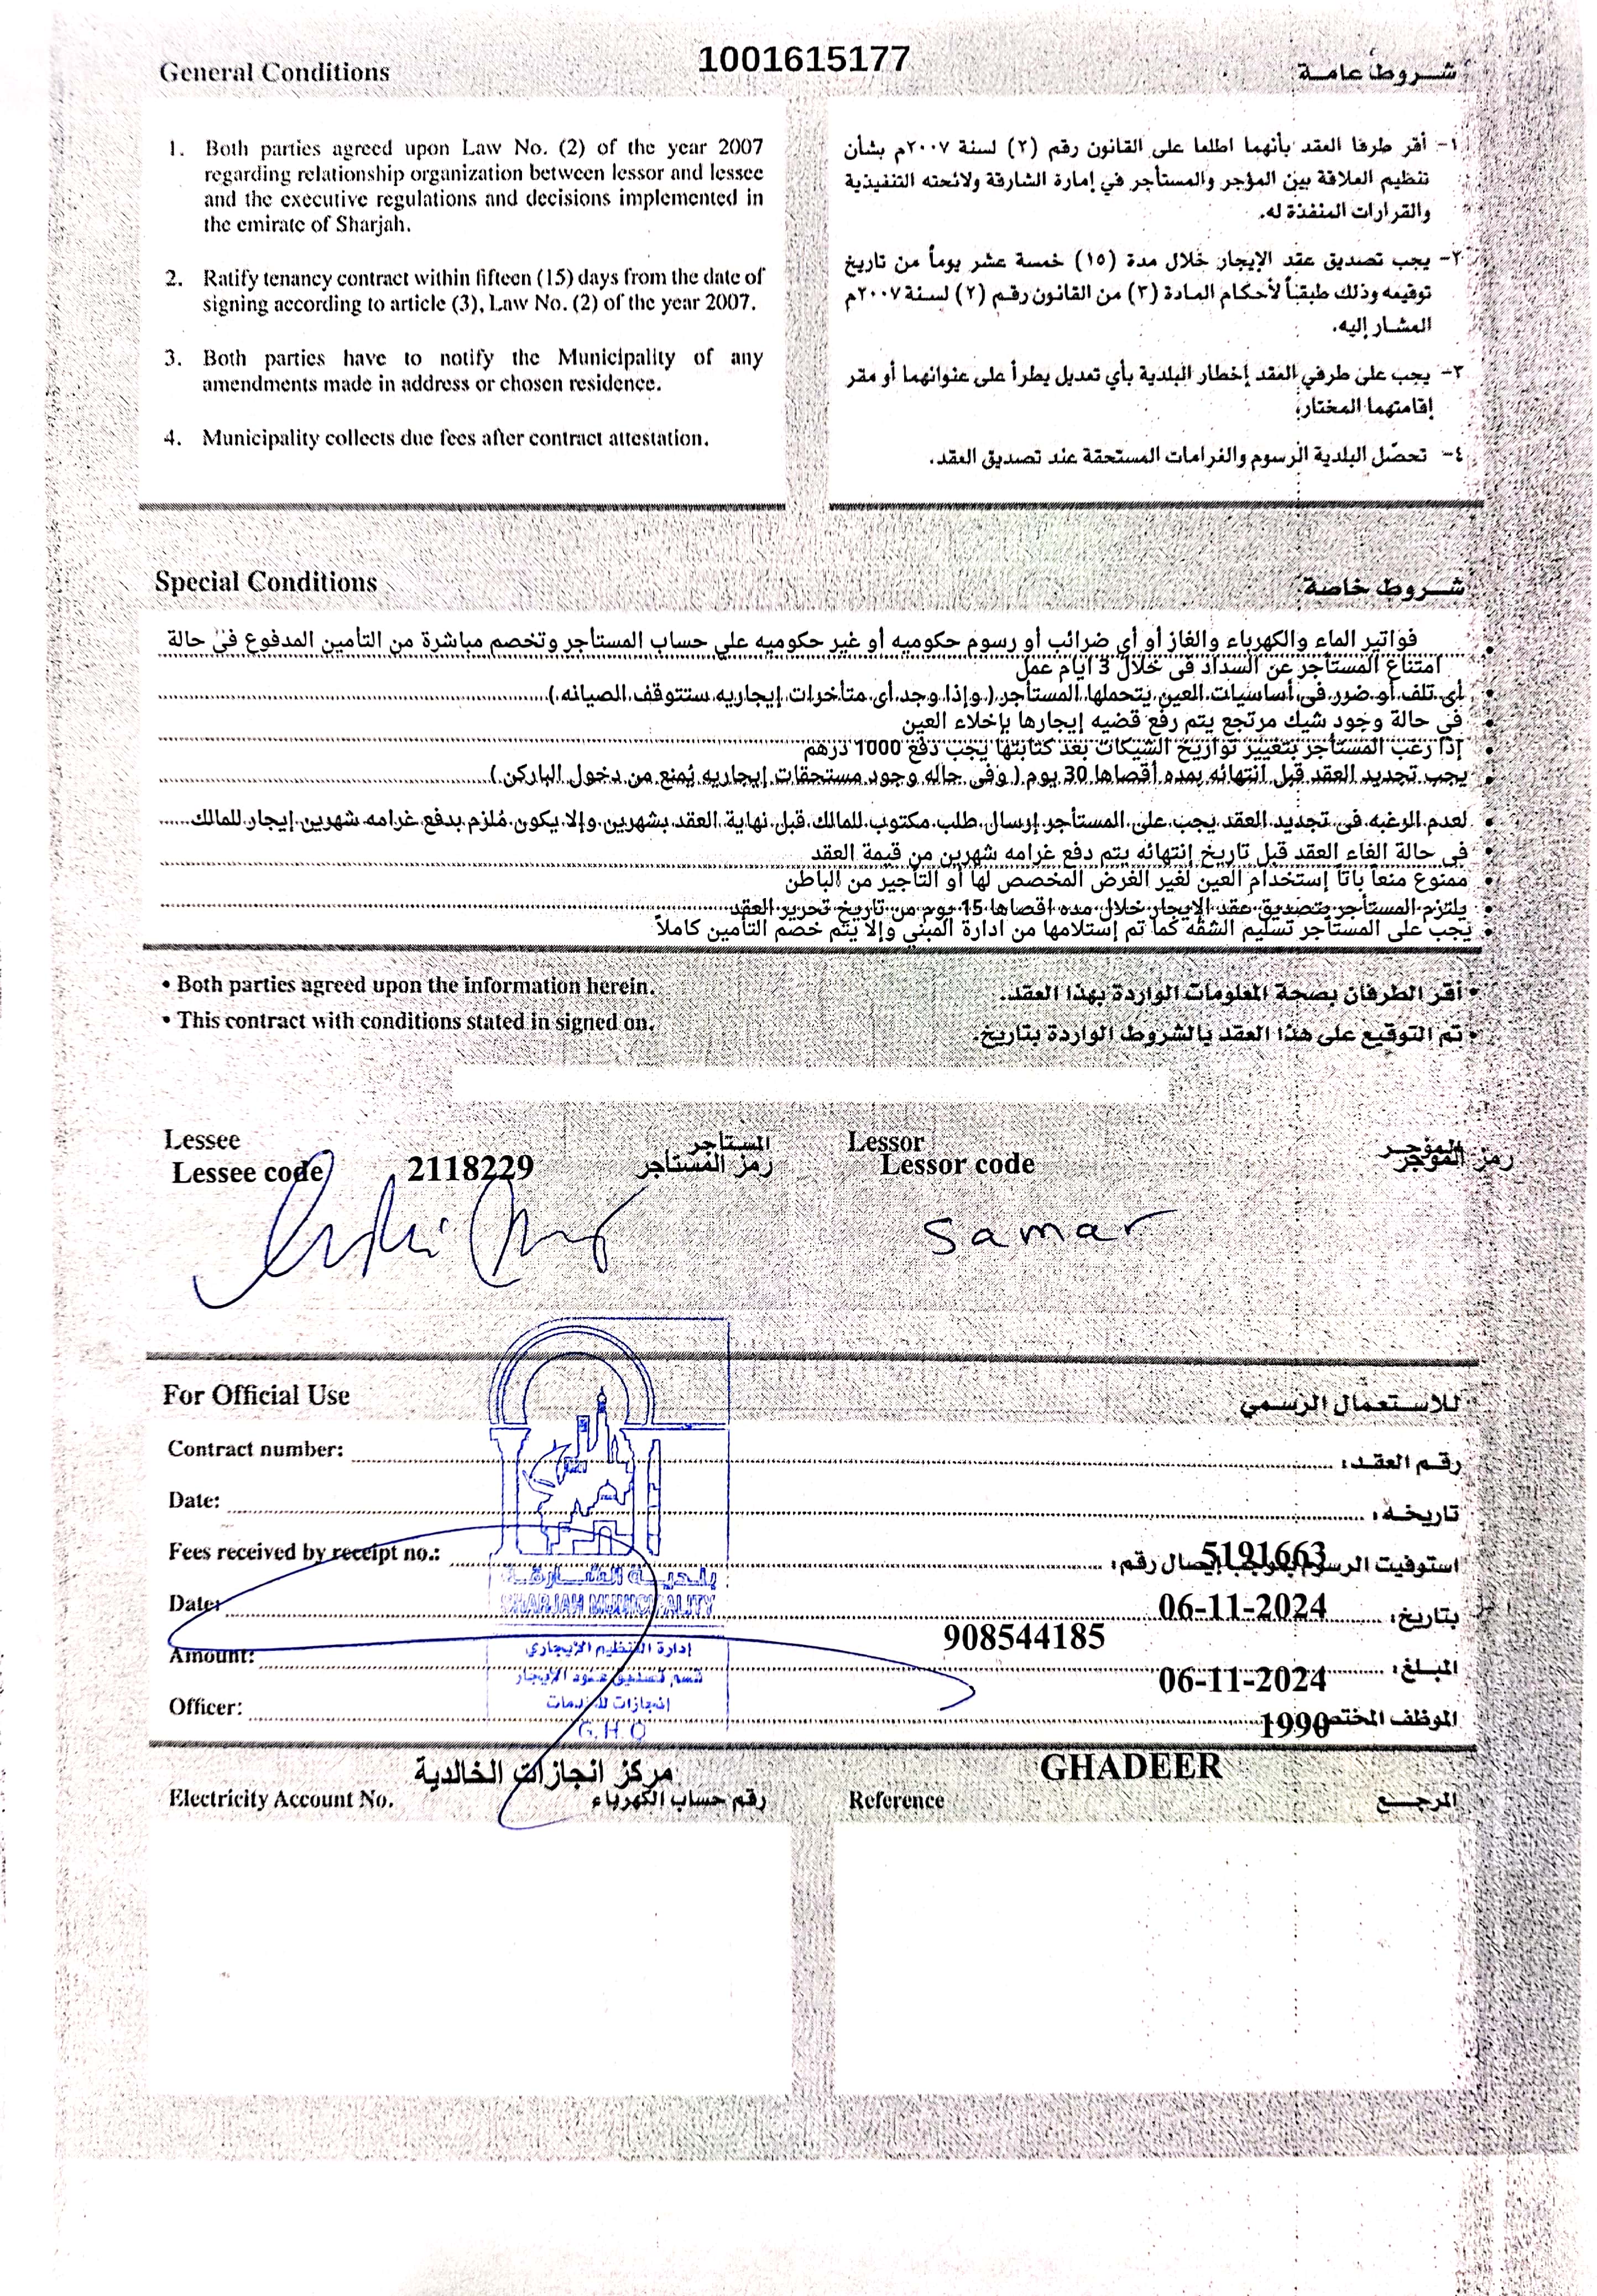 1001615177
General Conditions
شروط عامة
1. Both parties agreed upon Law No. (2) of the year 2007
regarding relationship organization between lessor and lessee
and the executive regulations and decisions implemented in
the emirate of Sharjah.
2. Ratify tenancy contract within fifteen (15) days from the date of
signing according to article (3), Law No. (2) of the year 2007.
3. Both parties have to notify the Municipality of any
amendments made in address or chosen residence.
4. Municipality collects due fees after contract attestation.
١- أقر طرفا العقد بأنهما اطلعا على القانون رقم (٢) لسنة ٢٠٠٧م بشأن
تنظيم العلاقة بين المؤجر والمستأجر في إمارة الشارقة ولائحته التنفيذية
والقرارات المنفذة له.
٢- يجب تصديق عقد الإيجار خلال مدة (١٥) خمسة عشر يوماً من تاريخ
توقيعه وذلك طبقاً لأحكام المادة (٣) من القانون رقم (٢) لسنة ٢٠٠٧م
المشار إليه.
٣- يجب على طرفي العقد إخطار البلدية بأي تعديل يطرأ على عنوانهما أو مقر
إقامتهما المختار.
٤- تحصّل البلدية الرسوم والغرامات المستحقة عند تصديق العقد.
Special Conditions
شروط خاصة
• فواتير الماء والكهرباء والغاز أو أي ضرائب أو رسوم حكوميه أو غير حكوميه علي حساب المستأجر وتخصم مباشرة من التأمين المدفوع في حالة
امتناع المستأجر عن السداد فى خلال 3 ايام عمل
• أي تلف أو ضرر فى أساسيات العين يتحملها المستأجر ( وإذا وجد أى متأخرات إيجاريه ستتوقف الصيانه )
• في حالة وجود شيك مرتجع يتم رفع قضيه إيجارها بإخلاء العين
• إذا رغب المستأجر بتغيير تواريخ الشيكات بعد كتابتها يجب دفع 1000 درهم
• يجب تجديد العقد قبل انتهائه بمده أقصاها 30 يوم ( وفى حاله وجود مستحقات إيجاريه يُمنع من دخول الباركن )
• لعدم الرغبه فى تجديد العقد يجب على المستأجر إرسال طلب مكتوب للمالك قبل نهاية العقد بشهرين وإلا يكون مُلزم بدفع غرامه شهرين إيجار للمالك
• فى حالة الغاء العقد قبل تاريخ إنتهائه يتم دفع غرامه شهرين من قيمة العقد
• ممنوع منعاً باتاً إستخدام العين لغير الغرض المخصص لها أو التأجير من الباطن
• يلتزم المستأجر بتصديق عقد الإيجار خلال مده اقصاها 15 يوم من تاريخ تحرير العقد
• يجب على المستأجر تسليم الشقه كما تم إستلامها من ادارة المبني وإلا يتم خصم التأمين كاملاً
• Both parties agreed upon the information herein.
• أقر الطرفان بصحة المعلومات الواردة بهذا العقد.
• This contract with conditions stated in signed on.
• تم التوقيع على هذا العقد بالشروط الواردة بتاريخ.
Lessee المستأجر Lessor المؤجر
Lessee code 2118229 رمز المستاجر Lessor code رمز الموجر
samar
For Official Use
للاستعمال الرسمي
Contract number: رقم العقد:
Date: تاريخه:
Fees received by receipt no.: 5191663 استوفيت الرسوم بموجب إيصال رقم:
بلدية الشارقة
SHARJAH MUNICIPALITY
Date: 06-11-2024 بتاريخ:
908544185
إدارة التنظيم الإيجاري
Amount: 06-11-2024 المبلغ:
قسم تصديق عقود الإيجار
إنجازات للخدمات
Officer: 1990 الموظف المختص
G.H.Q
مركز انجازات الخالدية
GHADEER
Electricity Account No. رقم حساب الكهرباء
Reference المرجع